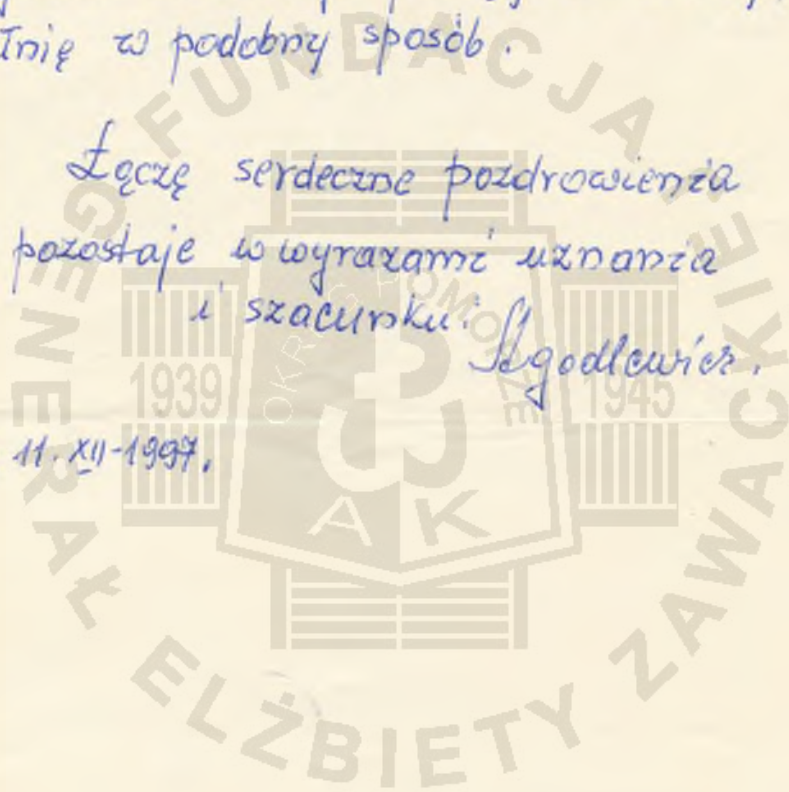 łnię w podobny sposób.
Łączę serdeczne pozdrowienia
pozostaje w wyrazami uznania
i szacunku.
11. XII-1997.
FUNDACJA
GENERAŁ ELŻBIETY ZAWACKIEJ
OKRĘG POMORZE
1939
1945
AK